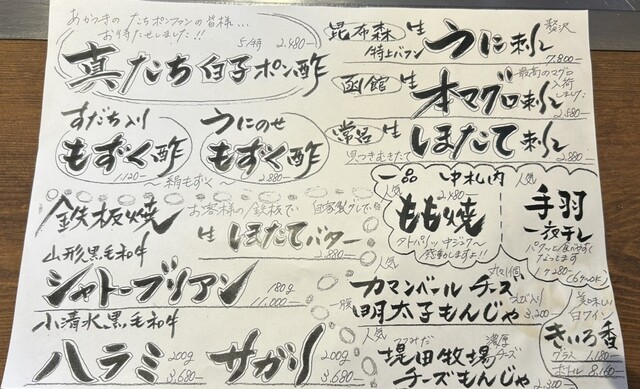 あかつきの たちポンファンの皆様…
お待たせしました!!
5/特 2,480-
真たち 白子ポン酢
昆布森 生 贅沢
特上バフン うに刺し
7,800-
函館 生 最高のマグロ
入荷しました
本マグロ刺し
2,580-
常呂 生 ほたて刺し
貝つきむきたて 2,880-
すだち入り
もずく酢
1,120-
うにのせ
もずく酢
2,880-
〜絹もずく〜
鉄板焼 お客様の鉄板で 自家製ブレンド
生 ほたてバター
880-
山形黒毛和牛
シャトーブリアン
180g
11,000-
小清水黒毛和牛
ハラミ 200g
3,680-
サガリ 200g
3,680-
一品 中札内
人気 2,480-
もも焼
外パリッ中ジュワ〜
感動しますよ!!
人気
手羽
一夜干し
パクッと食べやすく
なってます
1,280-
人気
カマンベールチーズ
丸々1個
明太子もんじゃ
3,200-
人気
堤田牧場 濃厚
チーズ
チーズもんじゃ
美味しい
白ワイン
きいろ香
グラス 1,180-
ボトル 8,160-